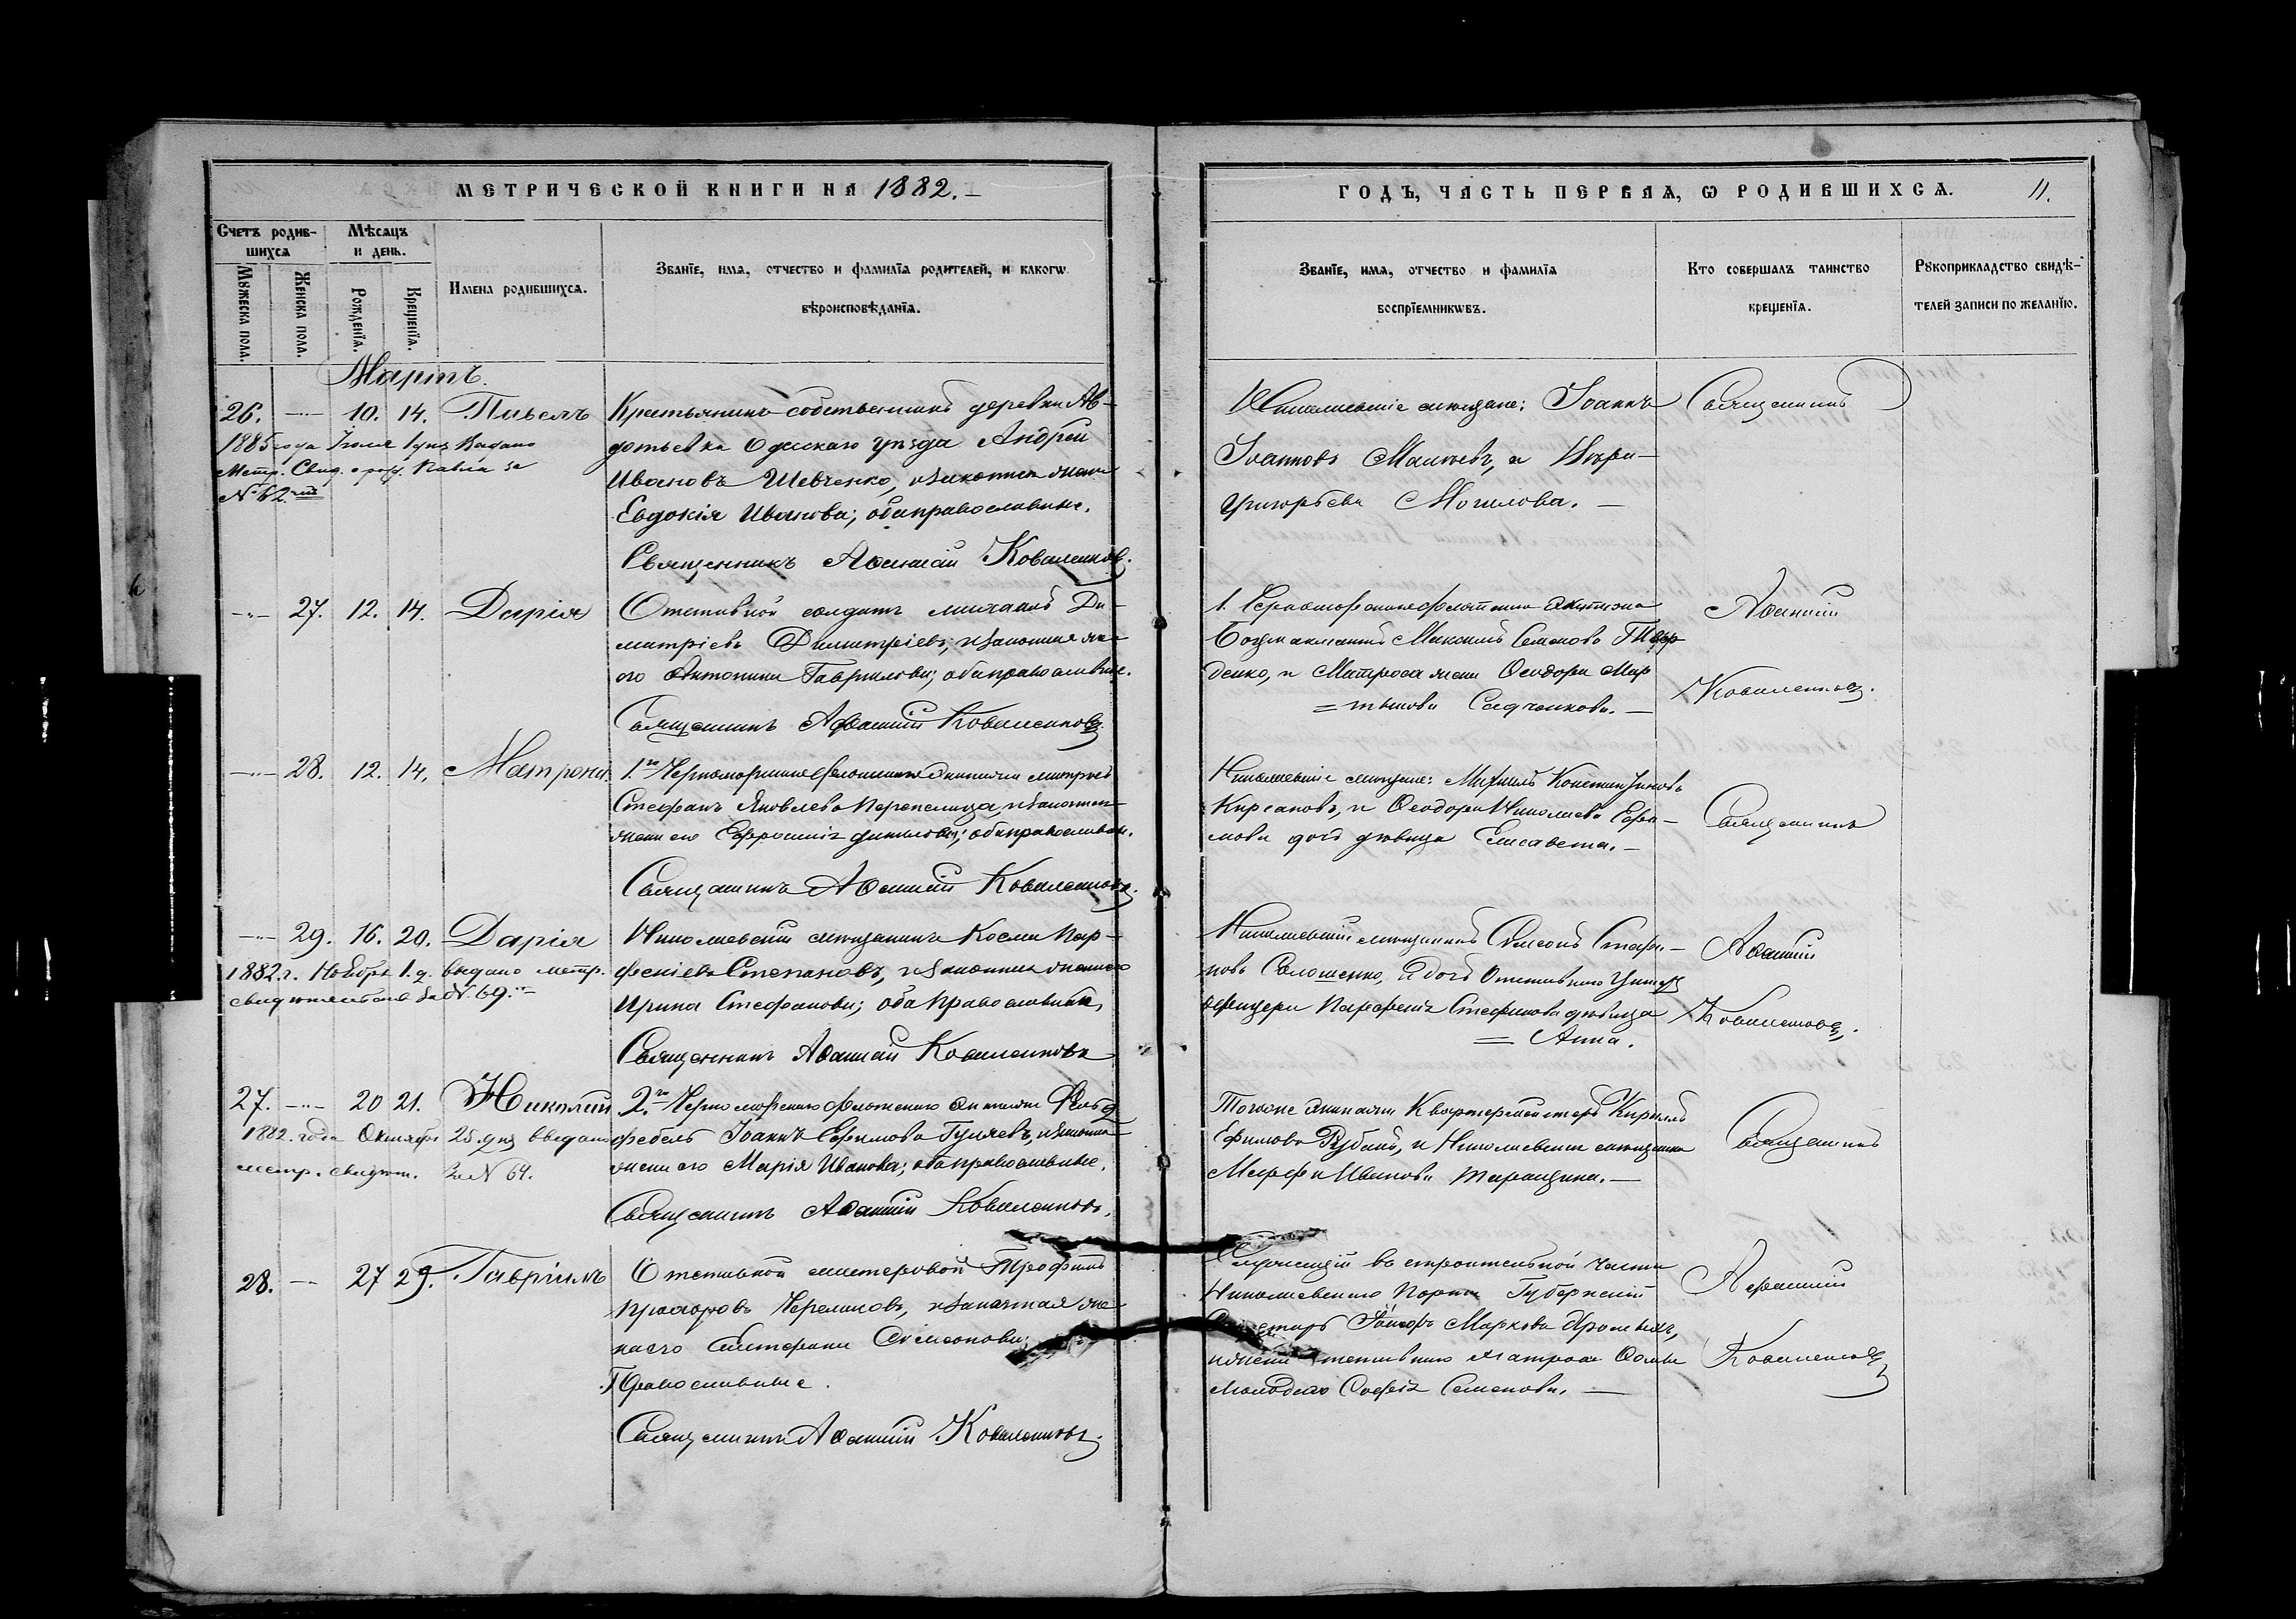 МЕТРИЧЕСКОЙ КНИГИ НА 1882.
Счетъ родив-
шихся
Мѣсяцъ
и день.
Мужеска пола.
Женска пола.
Рожденїя.
Крещенїя.
Имена родившихся.
Званїе, имя, отчество и фамилїя родителей, и какогѡ
вѣроисповѣданїя.
Мартъ.
26. 10. 14. Павелъ
1885 года Іюля 1 дня Выдано
Метр. Свид. о рож. Павла за
№ 62
Крестьянинъ собственникъ деревни Ав-
дотьевка Одесскаго уѣзда Андрей
Ивановъ Шевченко, и законная жена
Евдокія Иванова; оба православные.
Священникъ Аѳанасій Коваленковъ.
27. 12. 14. Дарія
Отставной солдатъ Ди-
митріевъ Димитріевъ, и законная же-
его Антонина Гаврилова; оба православные.
Священникъ Аѳанасій Коваленковъ
28. 12. 14. Матрона.
1. Черноморскаго флотскаго Экипажа матросъ
Стефанъ Яковлевъ Перепелица, и законная
жена его Евфросинія Данилова; оба православн.
Священникъ Аѳанасій Коваленковъ.
29. 16. 20. Дарія
1882 г. Ноября 1. д. выдано метр.
свидѣтельство за № 69.
Николаевскій мѣщанинъ Косма Пар-
феніевъ Степановъ, и законная жена его
Ирина Стефанова; оба православные,
Священникъ Аѳанасій Коваленковъ
27. 20 21. Николай
1882. года Октября 25 дня выдано
метр. свидѣт. за № 64.
2. Черноморскаго флотскаго экипажа Фельд
фебель Іоаннъ Ефимовъ Гуляевъ, и законная
жена его Марія Иванова; оба православные.
Священникъ Аѳанасій Коваленковъ.
28. 27 29. Гавріилъ
Отставной мастеровой Трофимъ
Прохоровъ, и законная же-
на его Симеонова;
Православные.
Священникъ Аѳанасій Коваленковъ.
ГОДЪ, ЧАСТЬ ПЕРВАЯ, Ѡ РОДИВШИХСЯ. 11.
Званїе, имя, отчество и фамилїя
воспрїемникѡвъ.
Кто совершалъ таинство
крещенїя.
Рукоприкладство свидѣ-
телей записи по желанїю.
Николаевскіе мѣщане: Іоаннъ
Іоанновъ, и
Григорьева Могилова.
Священникъ
1. Черноморскаго флотскаго экипажа
Максимъ Семеновъ
денко, и Матроса жена Ѳеодора Мар
= тынова Садченкова.
Аѳанасій
Коваленковъ.
Николаевскіе мѣщане: Михаилъ Константиновъ
Кирсановъ, и Ѳеодора Николаева Ефи-
мова дочь дѣвица Елисавета.
Священникъ
Николаевскій мѣщанинъ Симеонъ Стефа-
новъ, и дочь отставнаго Унтеръ
офицера Парфенія Стефанова дѣвица
= Анна.
Аѳанасій
Коваленковъ.
Тогоже экипажа Квартермейстеръ Кириллъ
Ефимовъ, и Николаевская мѣщанка
Марфа Иванова Таращина.
Священникъ
Служащій въ строительной части
Николаевскаго Порта Губернскій
Марковъ
отставнаго матроса
Софія Семенова.
Аѳанасій
Коваленковъ